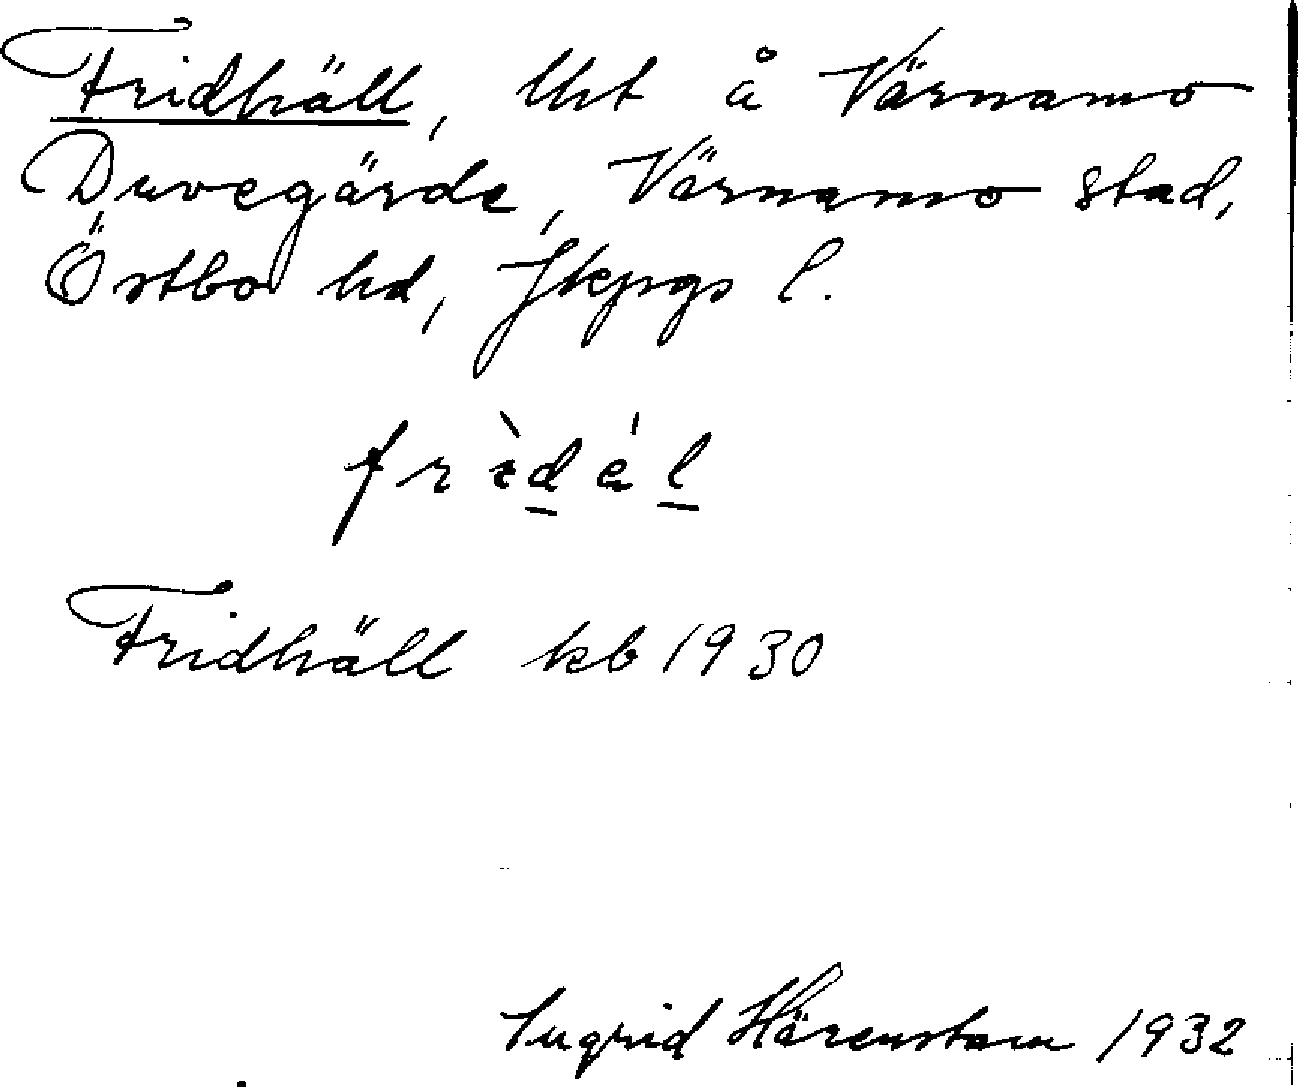 Fridhäll, lht å Värnamo
Duvegärde, Värnamo stad,
Östbo hd, Jkpgs l.
frìdál
Fridhäll kb 1930
Ingrid Härenstam 1932